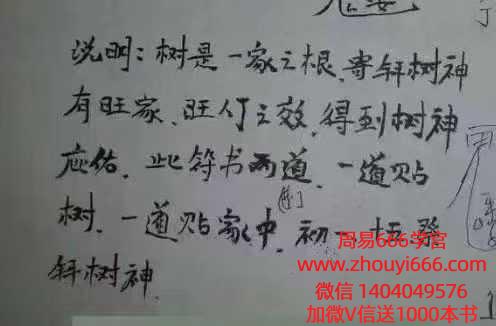 说明：树是一家之根、寄钎树神
有旺家、旺丁之效，得到树神
应佑．此符书两道．一道贴
树．一道贴家中．初一十五祭
钎树神．
周易666学官
www.zhouyi666.com
微信 1404049576
加微V信送1000本书